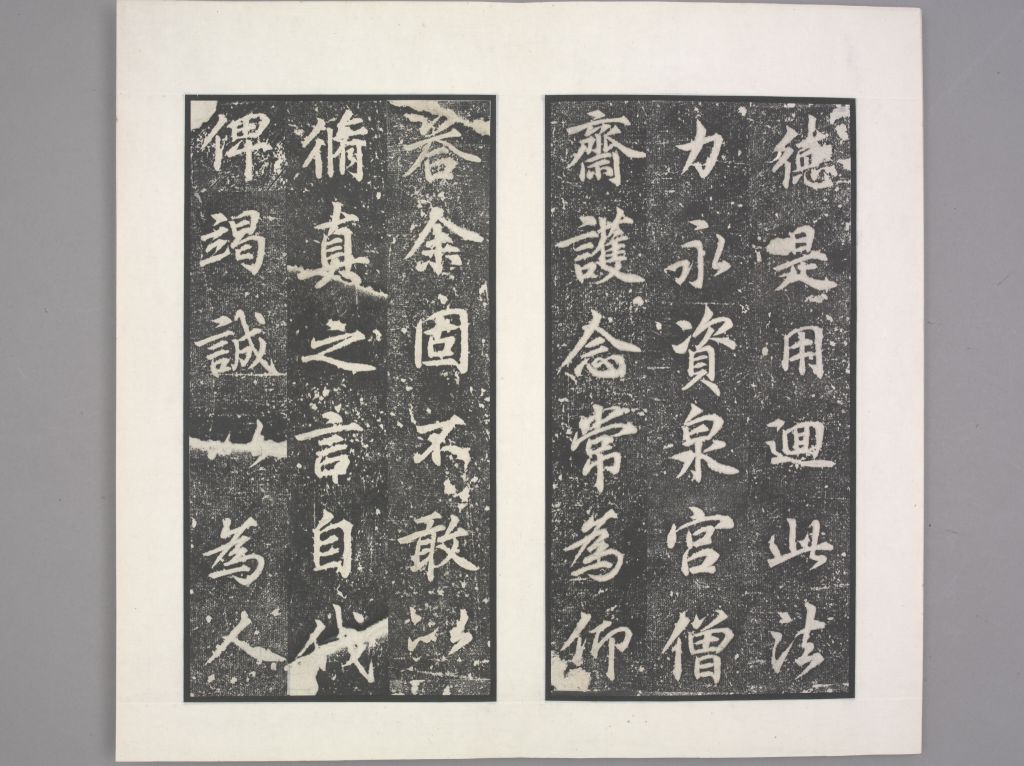 徳是用逥此法
力永資泉宮僧
齋護念常為仰
荅余固不敢以
脩真之言自代
俾竭誠以為人